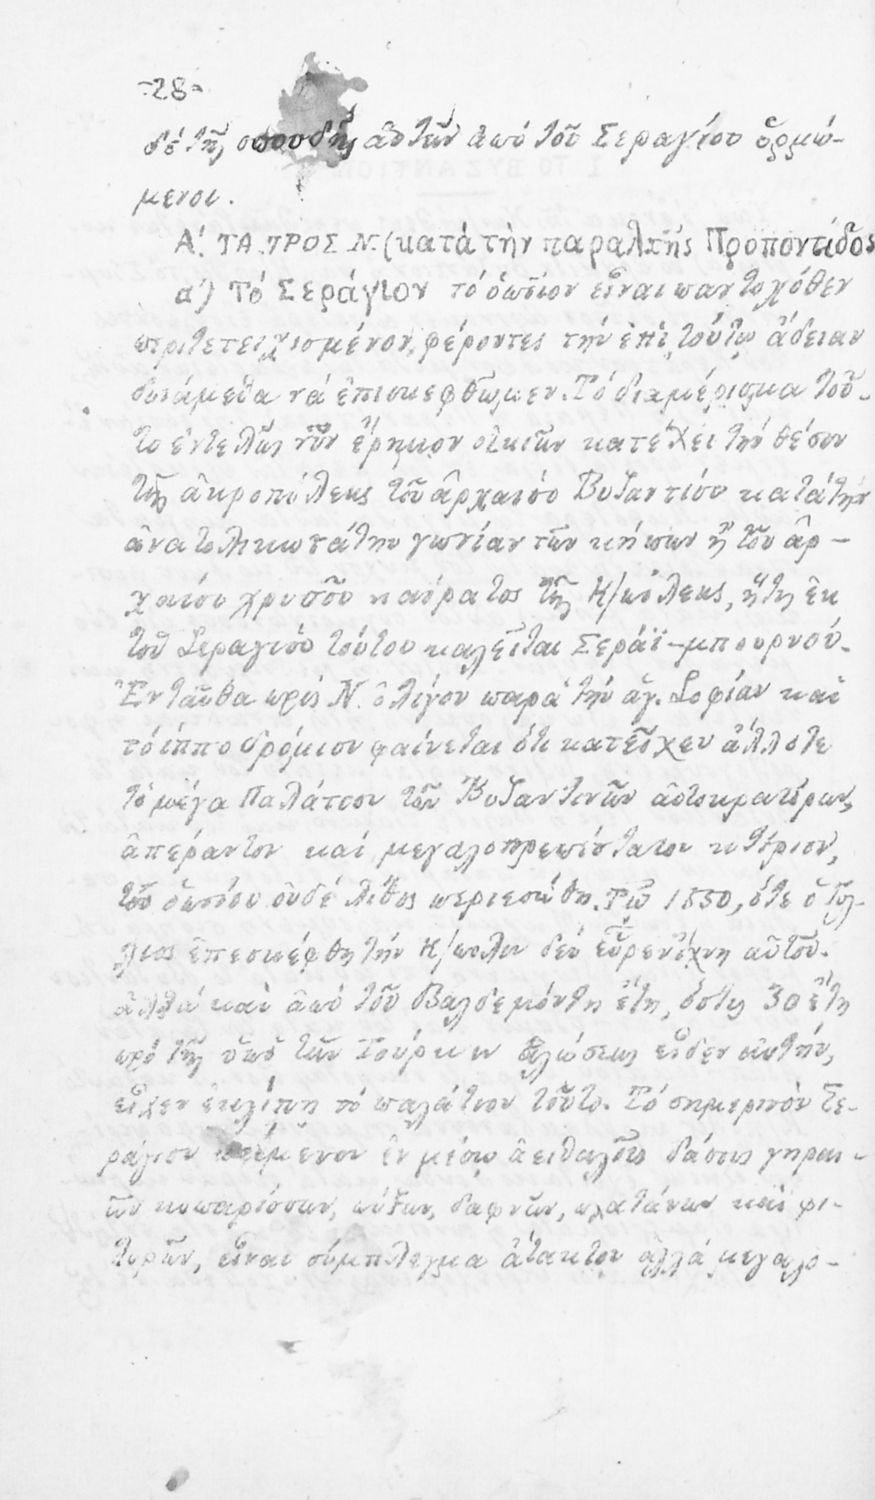 -28-
δὲ τῆς σπουδῆς αὐτῶν ἀπὸ τοῦ Σεραγίου ὁρμώ-
μενοι.
Α΄. ΤΑ ΠΡΟΣ Ν. (κατὰ τὴν παραλ. τῆς Προποντίδος
α΄) Τὸ Σεράγιον τὸ ὁποῖον εἶναι πανταχόθεν
περιτετειχισμένον, φέροντες τὴν ἐπὶ τούτῳ ἄδειαν
δυνάμεθα νὰ ἐπισκεφθῶμεν. Τὸ διαμέρισμα τοῦ-
το ἐντελῶς νῦν ἔρημον οἰκιῶν κατέχει τὴν θέσιν
τῆς ἀκροπόλεως τοῦ ἀρχαίου Βυζαντίου κατὰ τὴν
ἀνατολικωτάτην γωνίαν τῶν κήπων ἢ τοῦ ἀρ-
χαίου χρυσοῦ κέρατος τῆς Κ/πόλεως, ἥτις ἐκ
τοῦ Σεραγίου τούτου καλεῖται Σεράϊ-μπουρνού.
Ἐνταῦθα πρὸς Ν. ὀλίγον παρὰ τὴν ἁγ. Σοφίαν καὶ
τὸ ἱπποδρόμιον φαίνεται ὅτι κατεῖχεν ἄλλοτε
τὸ μέγα Παλάτιον τῶν Βυζαντινῶν αὐτοκρατόρων,
ἀπέραντον καὶ μεγαλοπρεπέστατον κτίριον,
τοῦ ὁποίου οὐδὲ λίθος περιεσώθη. Τῷ 1550, ὅτε ὁ Γύλ-
λιος ἐπεσκέφθη τὴν Κ/πολιν δὲν εὗρεν ἴχνη αὐτοῦ.
ἀλλὰ καὶ ἀπὸ τοῦ Βαλδεμόντη ἔτη, ὅστις 30 ἔτη
πρὸ τῆς ὑπὸ τῶν Τούρκων ἁλώσεως εἶδεν αὐτήν,
εἶχεν ἐκλίπῃ τὸ παλάτιον τοῦτο. Τὸ σημερινὸν Σε-
ράγιον κείμενον ἐν μέσῳ ἀειθαλοῦς δάσους γηραι-
ῶν κυπαρίσσων, πύξων, δαφνῶν, πλατάνων καὶ φι-
λυρῶν, εἶναι σύμπλεγμα ἄτακτον ἀλλὰ μεγαλο-